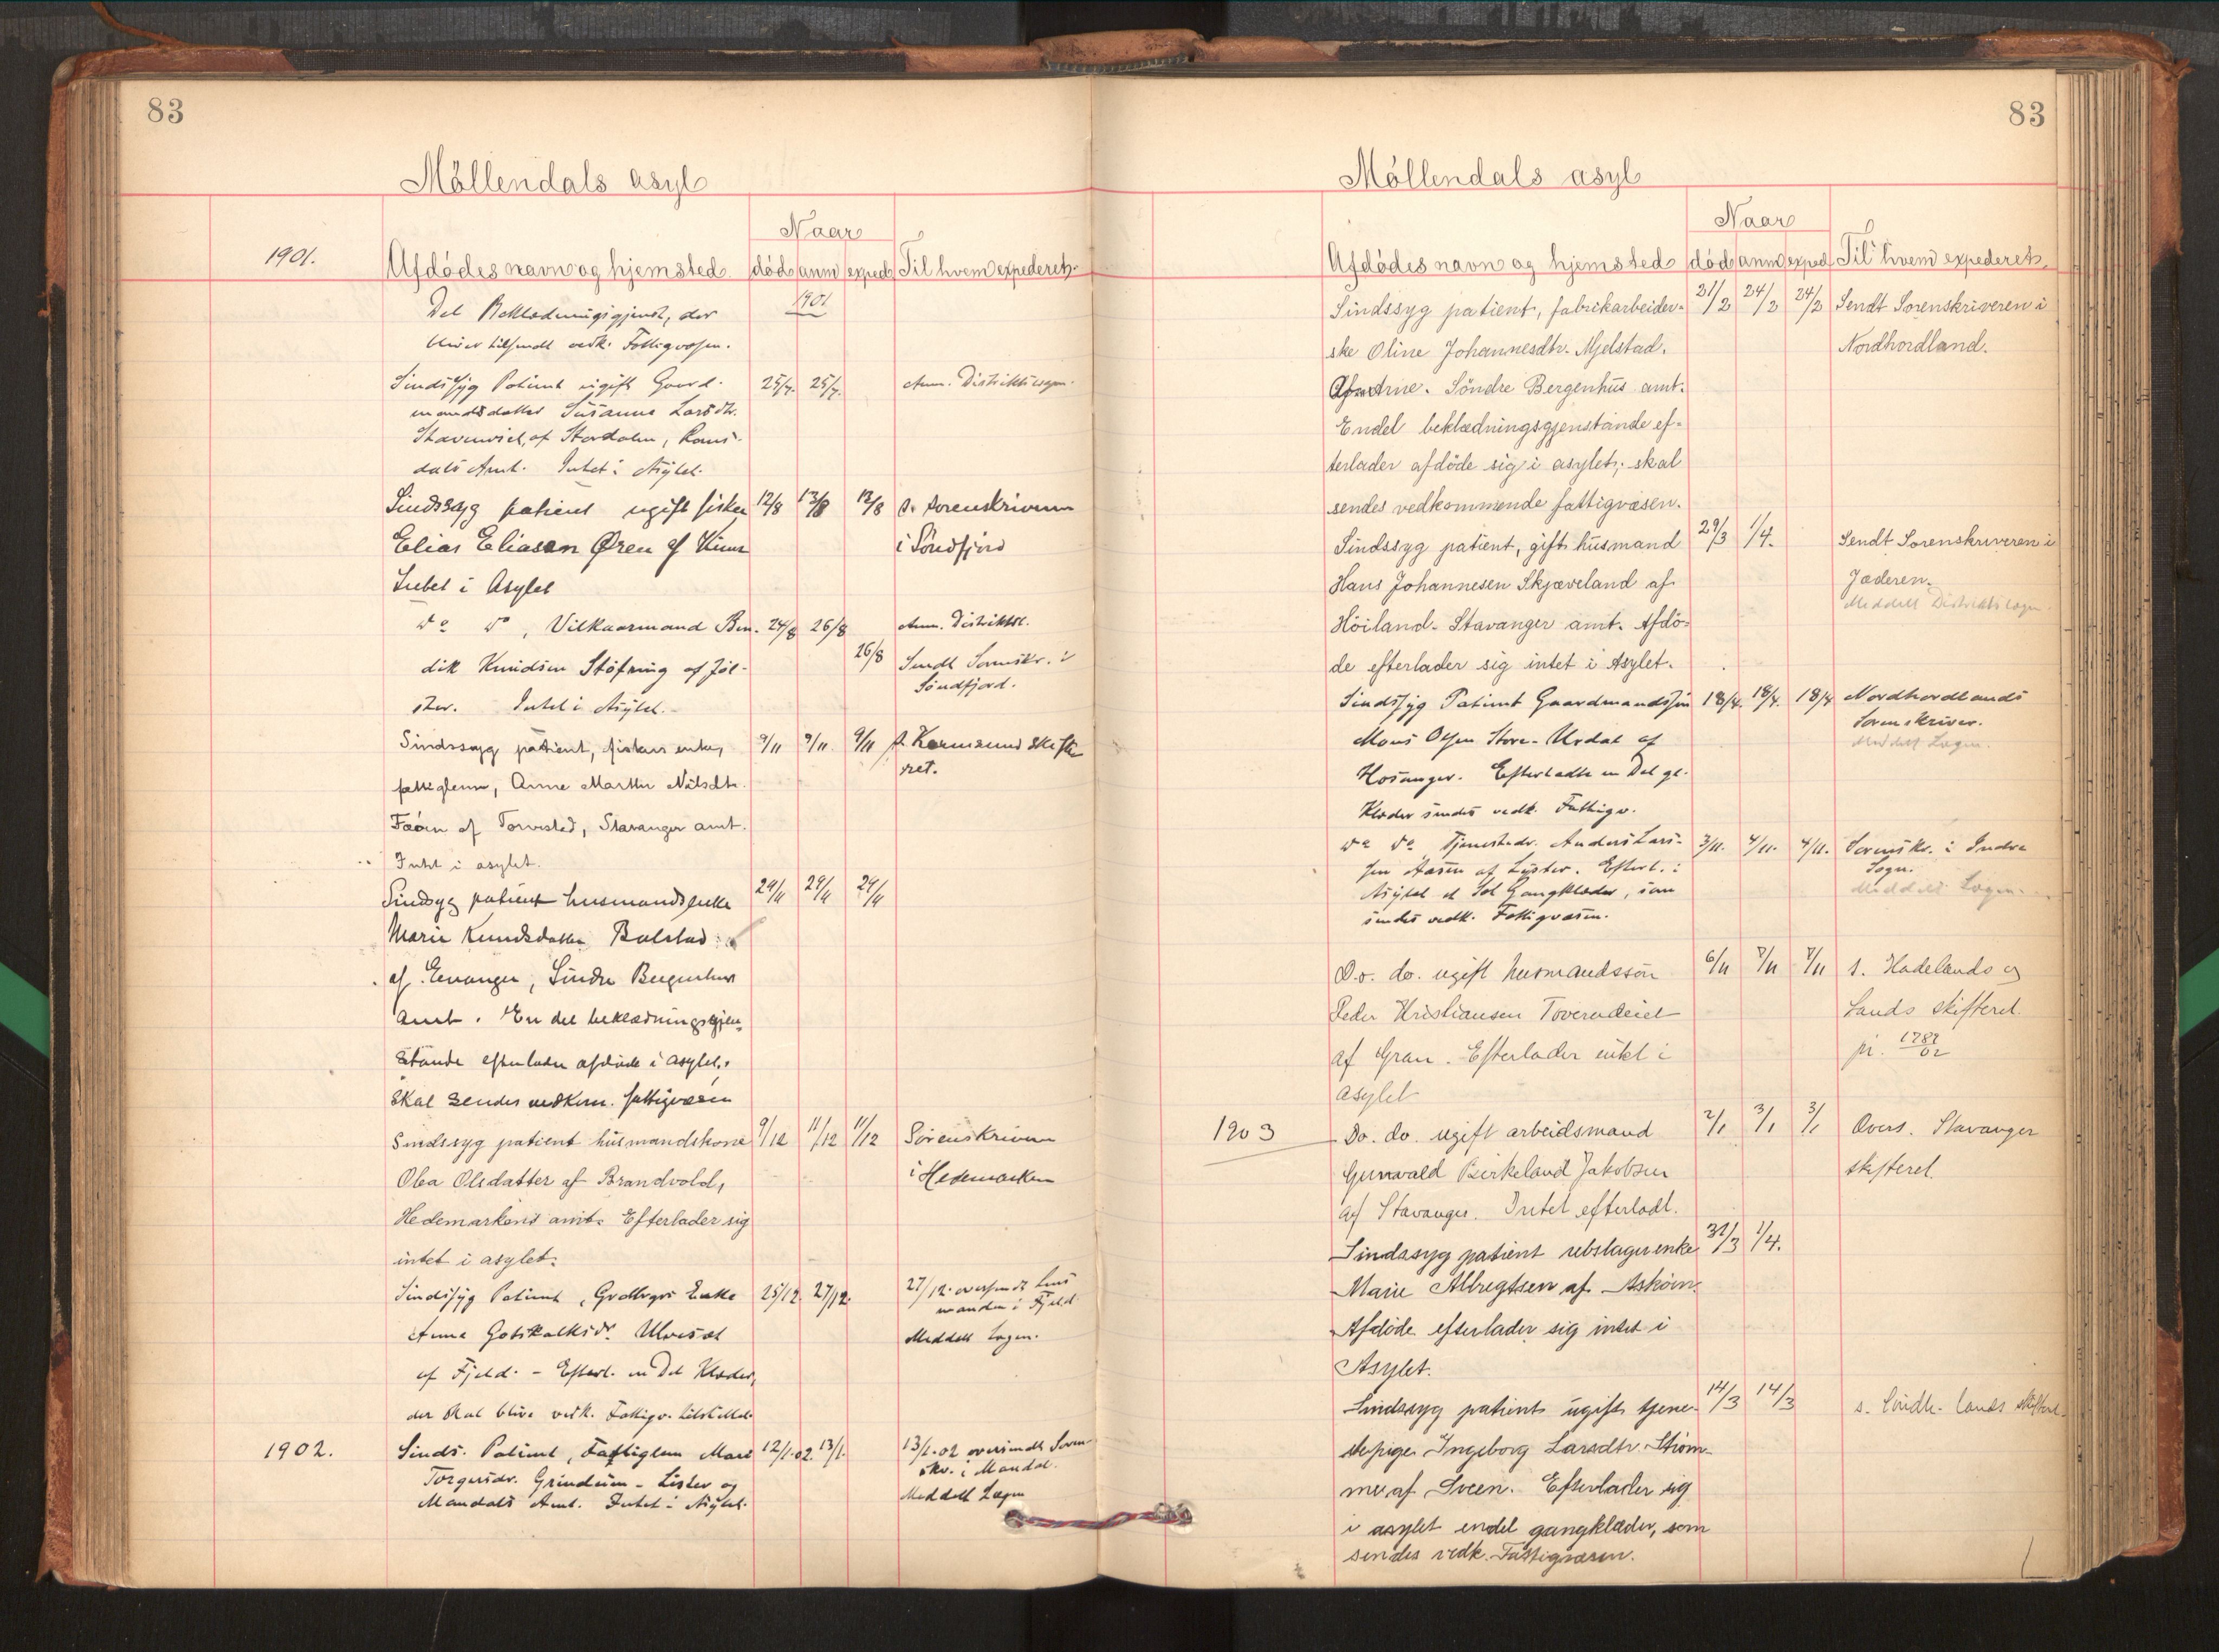 83
Möllendals asyl
Naar
1901.
Afdödes navn og hjemsted. död anm exped. Til hvem expederet.
1901
Del Beklædningsgjenst, der
bliver tilsendt vedk. Fattigvæsen.
Sindssyg Patient ugift Gaard- 25/7. 25/7. Anm. Distriktslægen.
mandsdatter Susanne Larsdtr.
af Stordalen, Roms-
dals Amt. Intet i Asylet.
Sindssyg patient ugift fisker 12/8 13/8 13/8 s. sorenskriveren
Elias Eliassen Øren af Kinn i Söndfjord
Intet i Asylet
do do, Vilkaarmand Ben- 24/8 26/8 Anm. Distriktsl.
26/8 Sendt Sorenskr. i
dik Knudsen Støfring af Jöl- Söndfjord.
ster. Intet i Asylet.
Sindssyg patient, fiskers enke, 9/11 9/11. 9/11 s. Karmsund skifte
fattiglem, Anne Marthe Nilsdtr. ret.
Faöen af Torvested, Stavanger amt.
Intet i asylet.
Sindsyg patient husmandsenke 29/11 29/11 29/11
Marie Knudsdatter Bolstad
af Evanger, Söndre Bergenhus
amt. En del beklædningsgjen-
stande efterlader afdøde i asylet,
skal sendes vedkom. fattigvæsen
Sindssyg patient husmandskone 9/12 11/12 11/12 Sorenskriveren
Olea Olsdatter af Brandvold, i Hedemarken
Hedemarkens amt. Efterlader sig
intet i asylet.
Sindssyg Patient, Gaardbrugers Enke 25/12. 27/12. 27/12. oversendt Lens
manden i Fjeld
Anna Gotskalksdr. Ulvesæt Meddelt Lægen.
af Fjeld. - Efterl. en Del Klæder,
der skal blive vedk. Fattigv. tilstillet.
1902. Sinds. Patient, Fattiglem Mari 12/1.02. 13/1. 13/1.02 oversendt Soren-
skr. i Mandal.
Torgersdr. Grindum - Lister og
Mandals Amt. Intet i Asylet. Meddelt Lægen
83
Möllendals asyl
Naar
Afdödes navn og hjemsted död anm exped Til hvem expederet.
Sindssyg patient, fabrikarbeider- 21/2 24/2 24/2 Sendt Sorenskriveren i
ske Oline Johannesdtr. Mjelstad. Nordhordland.
Söndre Bergenhus amt.
Endel beklædningsgjenstande ef-
terlader afdöde sig i asylet; skal
sendes vedkommende fattigvæsen.
Sindssyg patient, gift husmand 29/3 1/4. Sendt Sorenskriveren i
Hans Johannesen Skjæveland af Jæderen.
Meddelt Distriktslægen.
Höiland. Stavanger amt. Afdö-
de efterlader sig intet i Asylet.
Sindssyg Patient Gaardmandssøn 18/4. 18/4. 18/4 Nordhordlands
Sorenskriver.
Mons Olsen Store-Urdal af Meddelt Lægen.
Hosanger. Efterladte en Del gl.
Klæder sendes vedk. Fattigv.
do do Tjenestedr. Anders Lars- 3/11. 4/11. 4/11. Sorenskr. i Indre
sen Aasen af Lyster. Efterl. i Sogn.
Asylet et Sæt Gangklæder, som Meddelt Lægen.
sendes vedk. Fattigvæsen.
Do. do. ugift husmandssön 6/11 7/11 7/11 s. Hadelands og
Peder Kristiansen Toverudeiet Lands skifteret.
af Gran. Efterlader intet i
asylet
1903 Do. do. ugift arbeidsmand 2/1 3/1 3/1 Overs. Stavanger
Gunvald Birkeland Jakobsen skifteret.
af Stavanger. Intet efterladt.
Sindssyg patient rebslagerenke 31/3 1/4.
Marie Albregtsen af Askøen.
Afdøde efterlader sig intet i
Asylet.
Sindssyg patient ugift tjene- 14/3 14/3 s. Söndh. lands skifteret.
stepige Ingeborg Larsdtr. Ström-
me af Sveen. Efterlader sig
i asylet endel gangklæder, som
sendes vedk. Fattigvæsen.